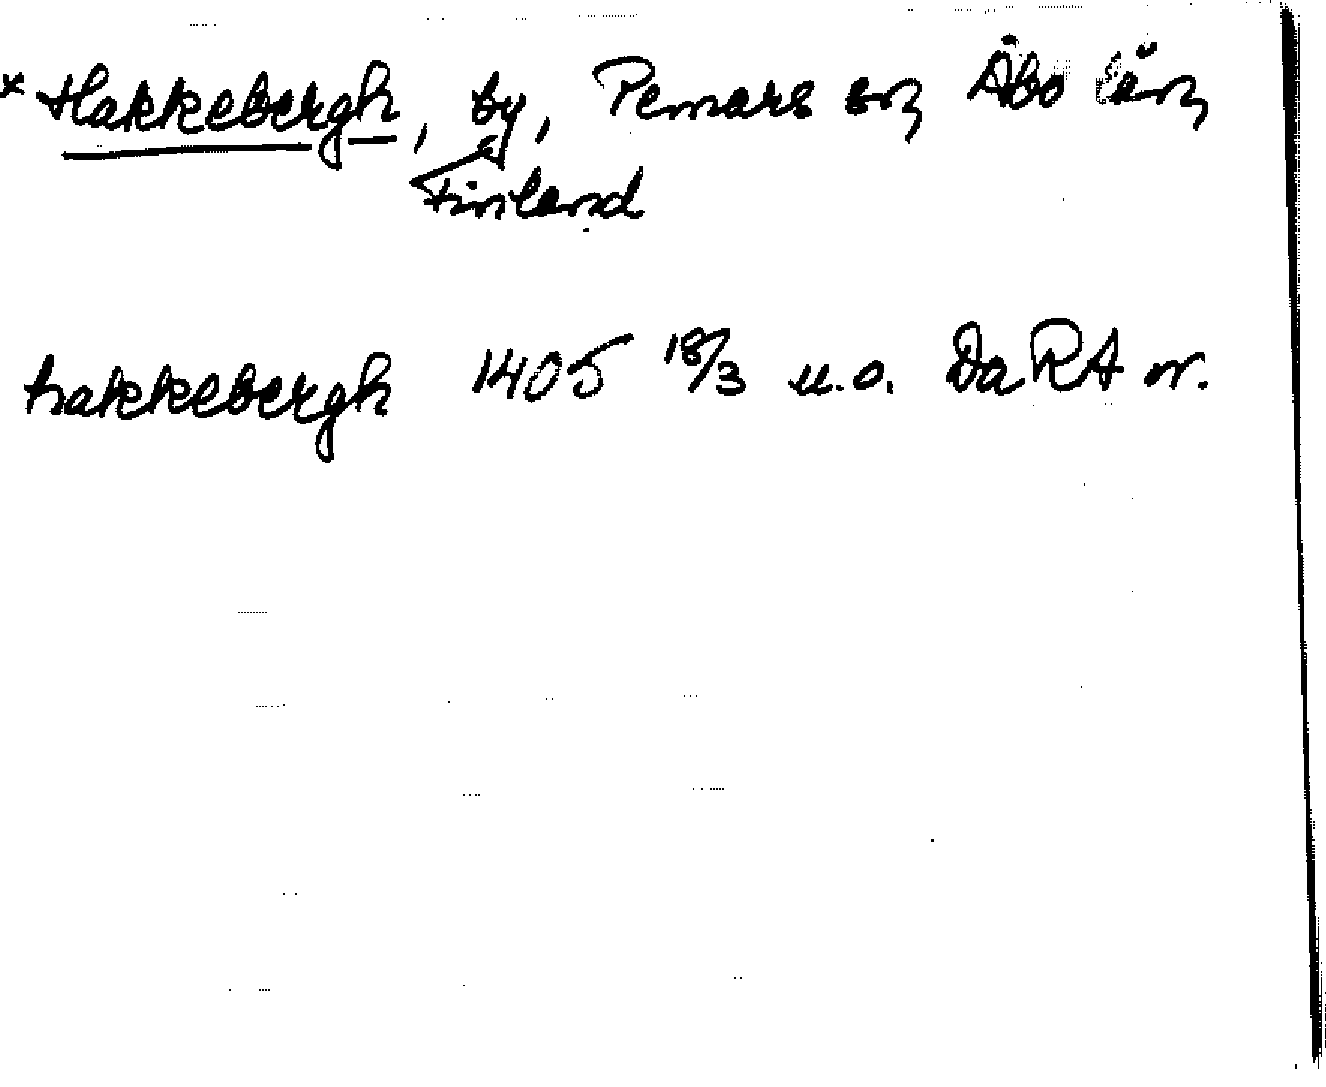 * Hakkebergh, by, Pemars sn, Åbo län,
Finland
hakkebergh 1405 18/3 u.o. Da RA nr.